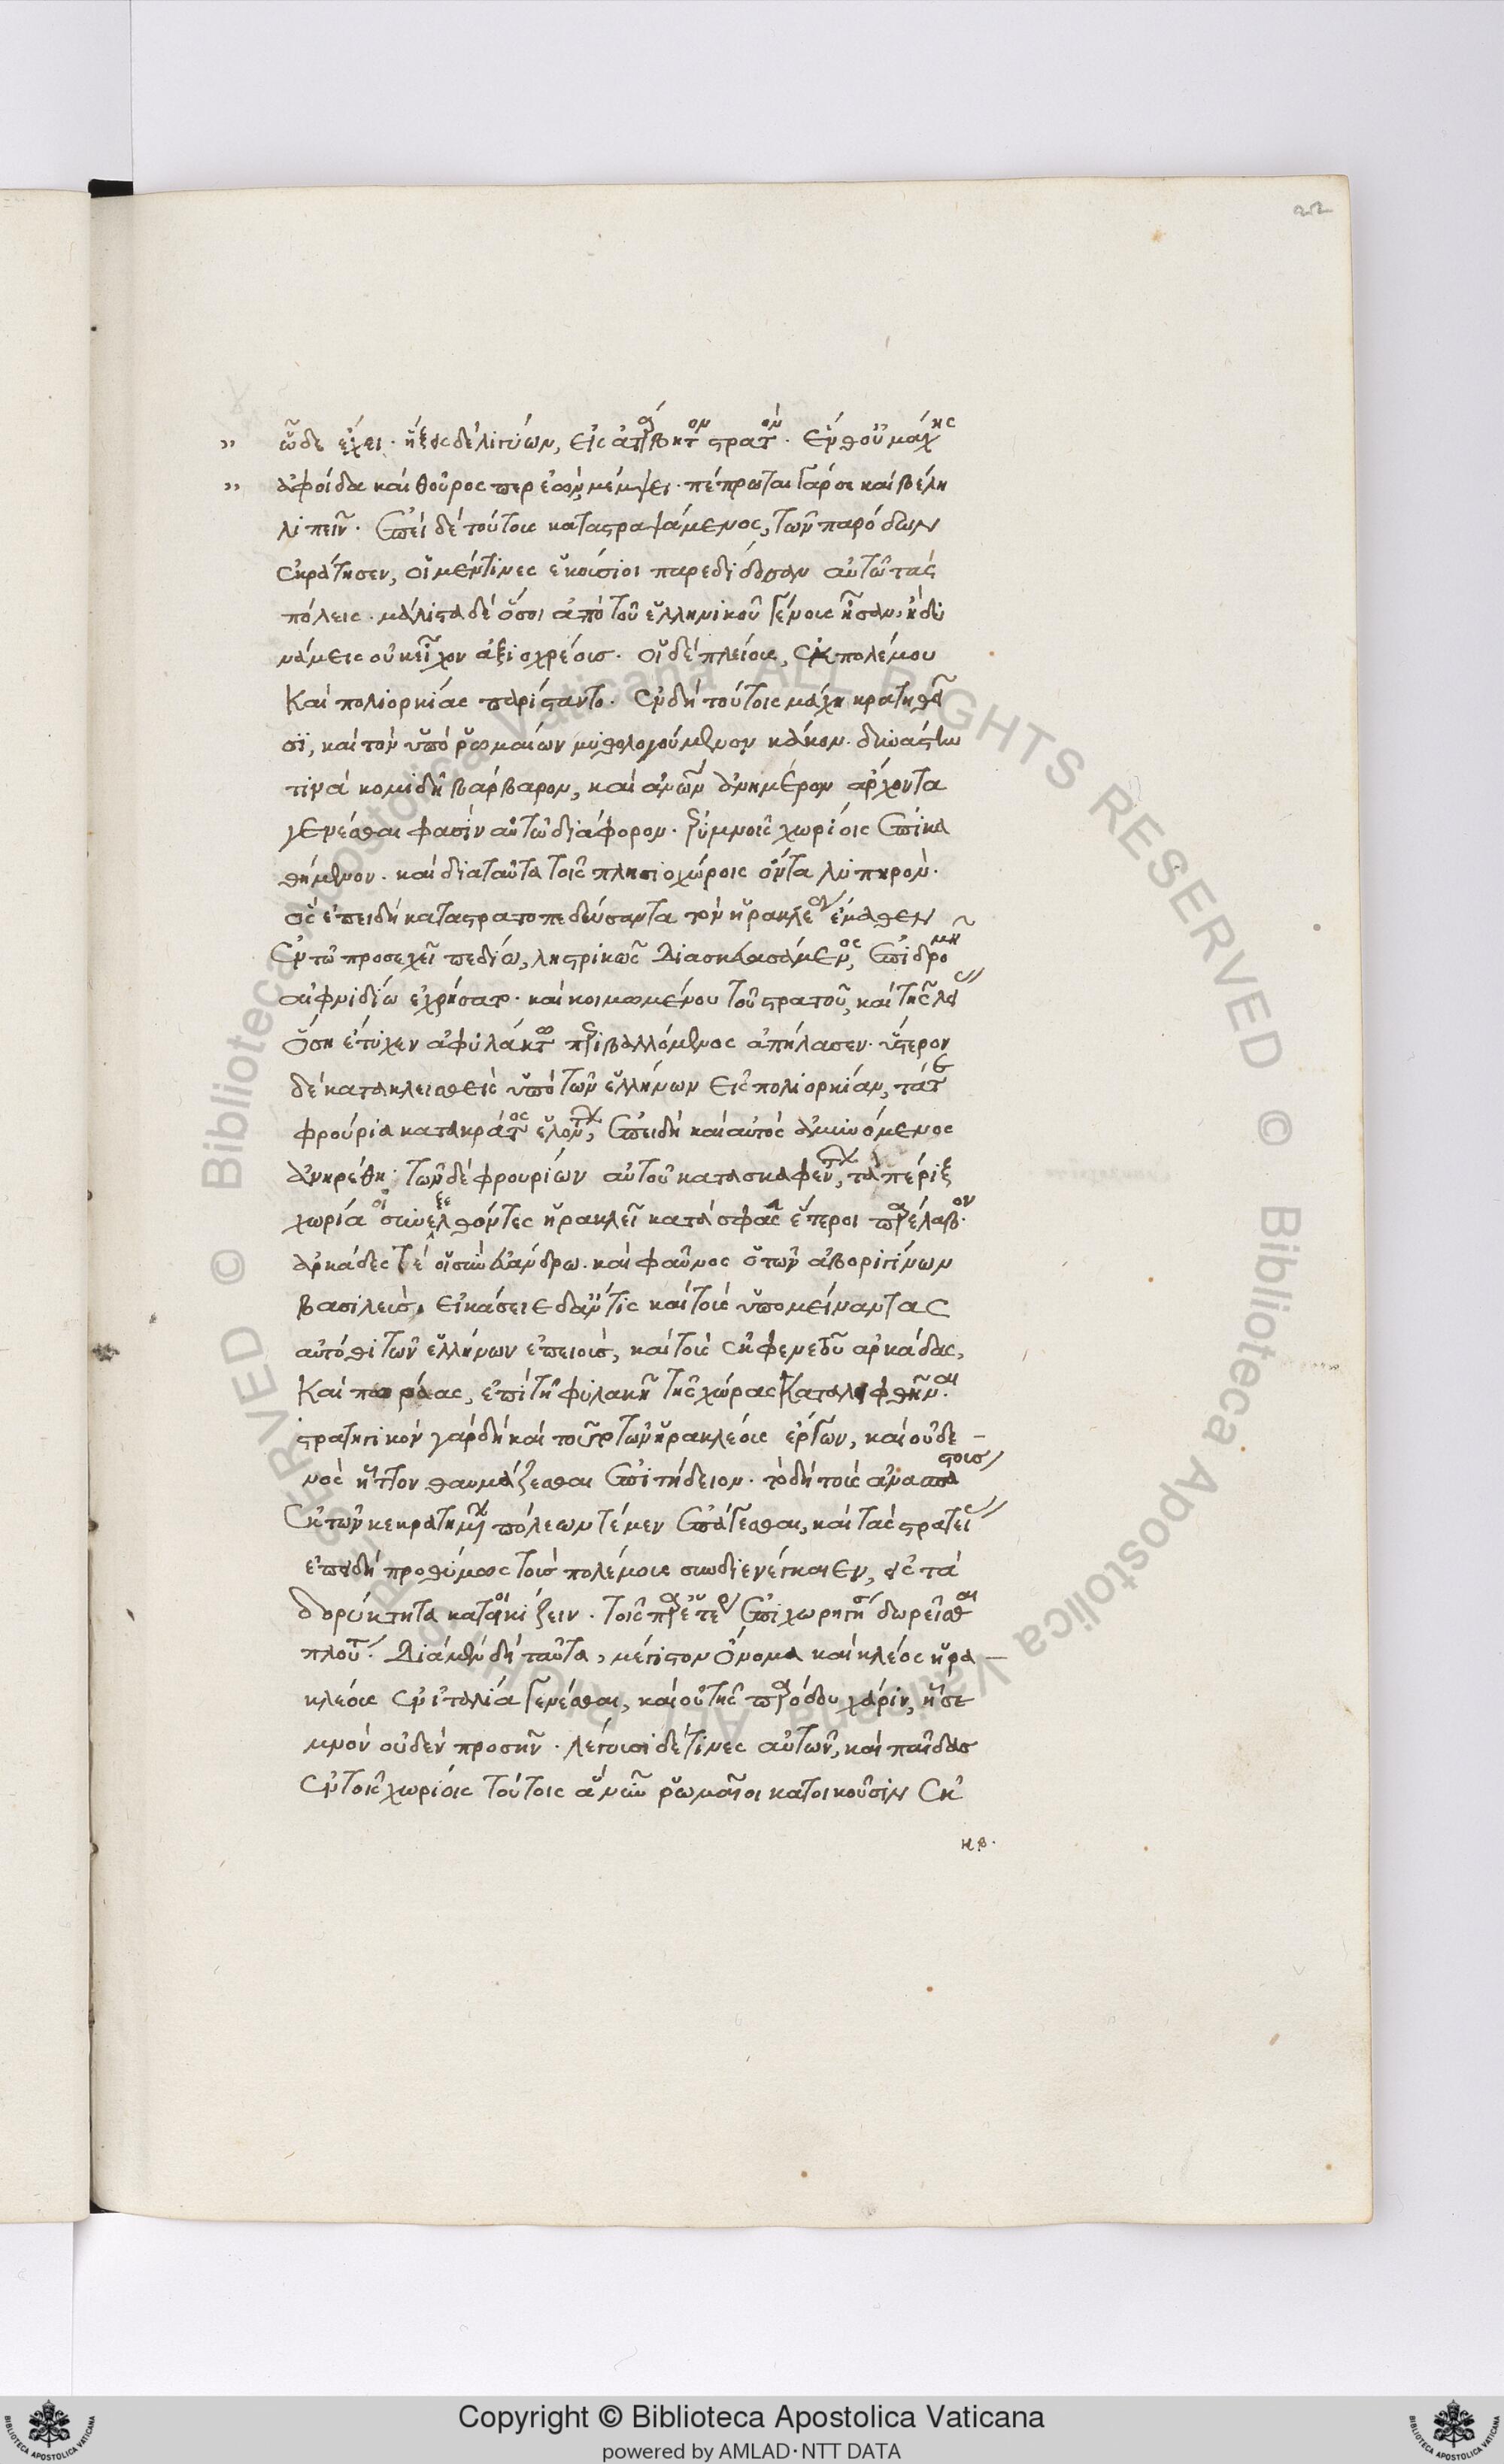 22
ὧδε ἔχει· ἥξεις δὲ λιγύων, εἰς ἀτάρβητον στρατόν. ἔνθ' οὐ μάχης
σάφ' οἶδα καὶ θοῦρος περ ἐὼν μέμψει. πέπρωται γάρ σε καὶ βέλη
λιπεῖν. ἐπεὶ δὲ τούτους καταστρεψάμενος, τῶν παρόδων
ἐκράτησεν, οἱ μέν τινες ἑκούσιοι παρεδίδοσαν αὐτῷ τὰς
πόλεις. μάλιστα δὲ ὅσοι ἀπὸ τοῦ ἑλληνικοῦ γένους ἦσαν, ἢ δυ
νάμεις οὐκ εἶχον ἀξιοχρέους. οἱ δὲ πλείους, ἐκ πολέμου
καὶ πολιορκίας παρίσταντο. ἐν δὴ τούτοις μάχῃ κρατηθεῖ
σι, καὶ τὸν ὑπὸ ῥωμαίων μυθολογούμενον κάκον. δυνάστην
τινὰ κομιδῇ βάρβαρον, καὶ ἀνθρώπων ἀνημέρων ἄρχοντα
γενέσθαι φασὶν αὐτῷ διάφορον. ἐρύμνοις χωρίοις ἐπικα
θήμενον. καὶ διὰ ταῦτα τοῖς πλησιοχώροις ὄντα λυπηρόν.
ὃς ἐπειδὴ καταστρατοπεδεύσαντα τὸν ἡρακλέα ἔμαθεν
ἐν τῷ προσεχεῖ πεδίῳ, λῃστρικῶς διασκευασάμενος, ἐπιδρομῇ
αἰφνιδίῳ ἐχρήσατο. καὶ κοιμωμένου τοῦ στρατοῦ, καὶ τῆς λείας
ὅση ἔτυχεν ἀφύλακτος περιβαλλόμενος ἀπήλασεν. ὕστερον
δὲ κατακλεισθεὶς ὑπὸ τῶν ἑλλήνων εἰς πολιορκίαν, τά τε
φρούρια κατὰ κράτος ἑλόντων, ἐπειδὴ καὶ αὐτὸς ἀμυνόμενος
ἀνῃρέθη. τῶν δὲ φρουρίων αὐτοῦ κατασκαφέντων, τὰ πέριξ
χωρία οἱ συνεξελθόντες ἡρακλεῖ κατὰ σφᾶς ἕτεροι παρέλαβον.
ἀρκάδες τέ οἱ σὺν εὐάνδρῳ. καὶ φαῦνος ὁ τῶν ἀβοριγίνων
βασιλεύς. εἰκάσειε δ' ἄν τις καὶ τοὺς ὑπομείναντας
αὐτόθι τῶν ἑλλήνων ἐπειούς, καὶ τοὺς ἐκ φενεοῦ ἀρκάδας,
καὶ τρῶας, ἐπὶ τῇ φυλακῇ τῆς χώρας καταλειφθῆναι.
στρατηγικὸν γὰρ δὴ καὶ τοῦτο τῶν ἡρακλέους ἔργων, καὶ οὐδε-
νὸς ἧττον θαυμάζεσθαι ἐπιτήδειον. τὸ δὴ τοὺς ἀναστάτους
ἐκ τῶν κεκρατημένων πόλεων τέως μὲν ἐπάγεσθαι, καὶ ταῖς στρατείαις
ἐπειδὴ προθύμως τοὺς πολέμους συνδιενέγκαιεν, εἰς τὰ
δορύκτητα κατοικίζειν. τοῖς παρ' ἑτέρων ἐπιχωρηγῆσαι δωρεῖσθαι
πλούτοις. διὰ μὲν δὴ ταῦτα, μέγιστον ὄνομα καὶ κλέος ἡρα-
κλέους ἐν ἰταλίᾳ γενέσθαι, καὶ οὐ τῆς παρόδου χάριν, ᾗ σε
μνὸν οὐδὲν προσῆν. λέγουσι δέ τινες αὐτῶν, καὶ παῖδας
ἐν τοῖς χωρίοις τούτοις ἃ νῦν ῥωμαῖοι κατοικοῦσιν ἐκ
κβ.
© Biblioteca Apostolica Vaticana ALL RIGHTS RESERVED © Biblioteca Apostolica Vaticana ALL RIGHTS RESERVED
Copyright © Biblioteca Apostolica Vaticana
powered by AMLAD·NTT DATA